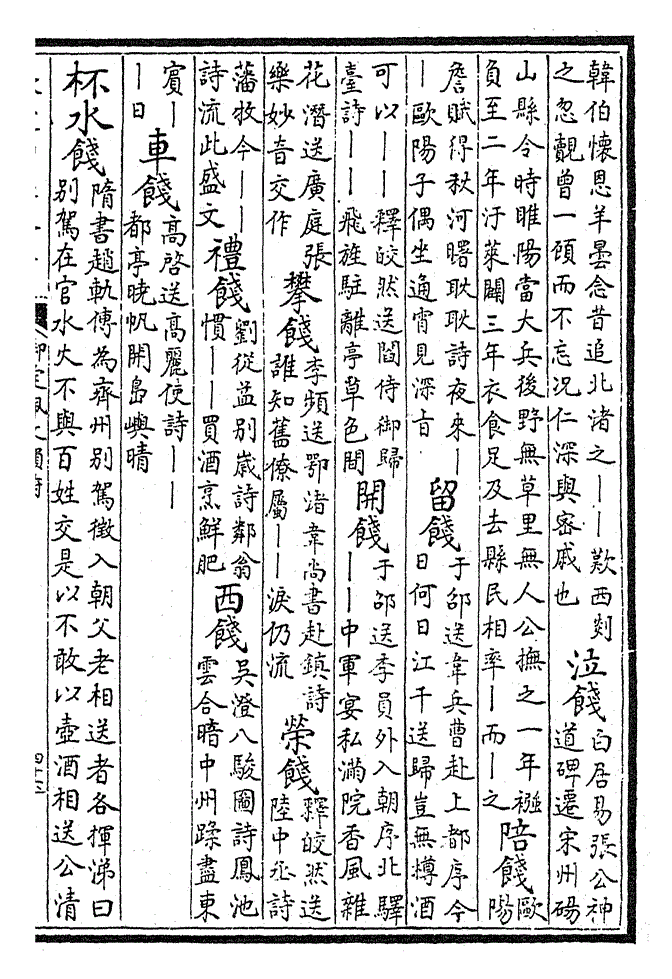 韓伯懷恩羊曇念昔追北渚之——歎西剡
之忽覿曾一頋而不忘况仁深與密戚也
泣餞
白居易張公神
道碑遷宋州碭
山縣令時睢陽當大兵後野無草里無人公撫之一年襁
負至二年汙萊闢三年衣食足及去縣民相率—而—之
陪餞
歐
陽
詹賦得秋河曙耿耿詩夜來—
—歐陽子偶坐通宵見深旨
留餞
于邵送韋兵曹赴上都序今
日何日江干送歸豈無樽酒
可以——
釋皎然送閻侍御歸
臺詩——飛旌駐離亭草色間
開餞
于邵送李員外入朝序北驛
——中軍宴私滿院香風雜
花潛送廣庭張
樂妙音交作
攀餞
李頻送鄂渚韋尚書赴鎮詩
誰知舊僚屬——淚仍流
榮餞
釋皎然送
陸中丞詩
藩牧今——
詩流此盛文
禮餞
劉從益别嵗詩鄰翁
慣——買酒烹鮮肥
西餞
吳澄八駿圖詩鳳池
雲合暗中州蹂盡東
賓—
—日
車餞
高啓送高麗使詩——
都亭曉帆開島嶼晴
杯水餞
隋書趙軌傳為齊州别駕徵入朝父老相送者各揮涕曰
别駕在官水火不與百姓交是以不敢以壺酒相送公清